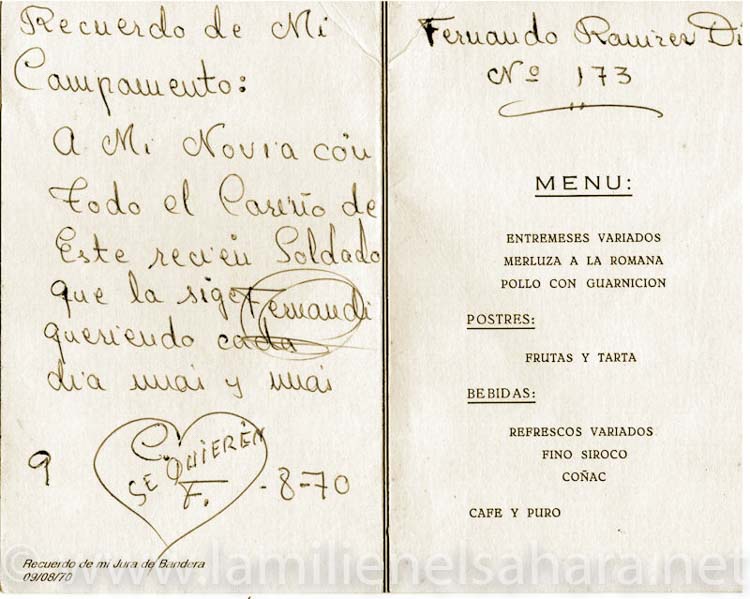 Recuerdo de Mi
Campamento:
A Mi Novia con
todo el Cariño de
Este recien Soldado
que la sige Fernandi
queriendo cada
dia mas y mas
C.
SE QUIEREN
F.
9 -8-70
Recuerdo de mi Jura de Bandera
09/08/70
Fernando Ramirez Di
Nº 173
MENU:
ENTREMESES VARIADOS
MERLUZA A LA ROMANA
POLLO CON GUARNICION
POSTRES:
FRUTAS Y TARTA
BEBIDAS:
REFRESCOS VARIADOS
FINO SIROCO
COÑAC
CAFE Y PURO
© www.lamilienelsahara.net